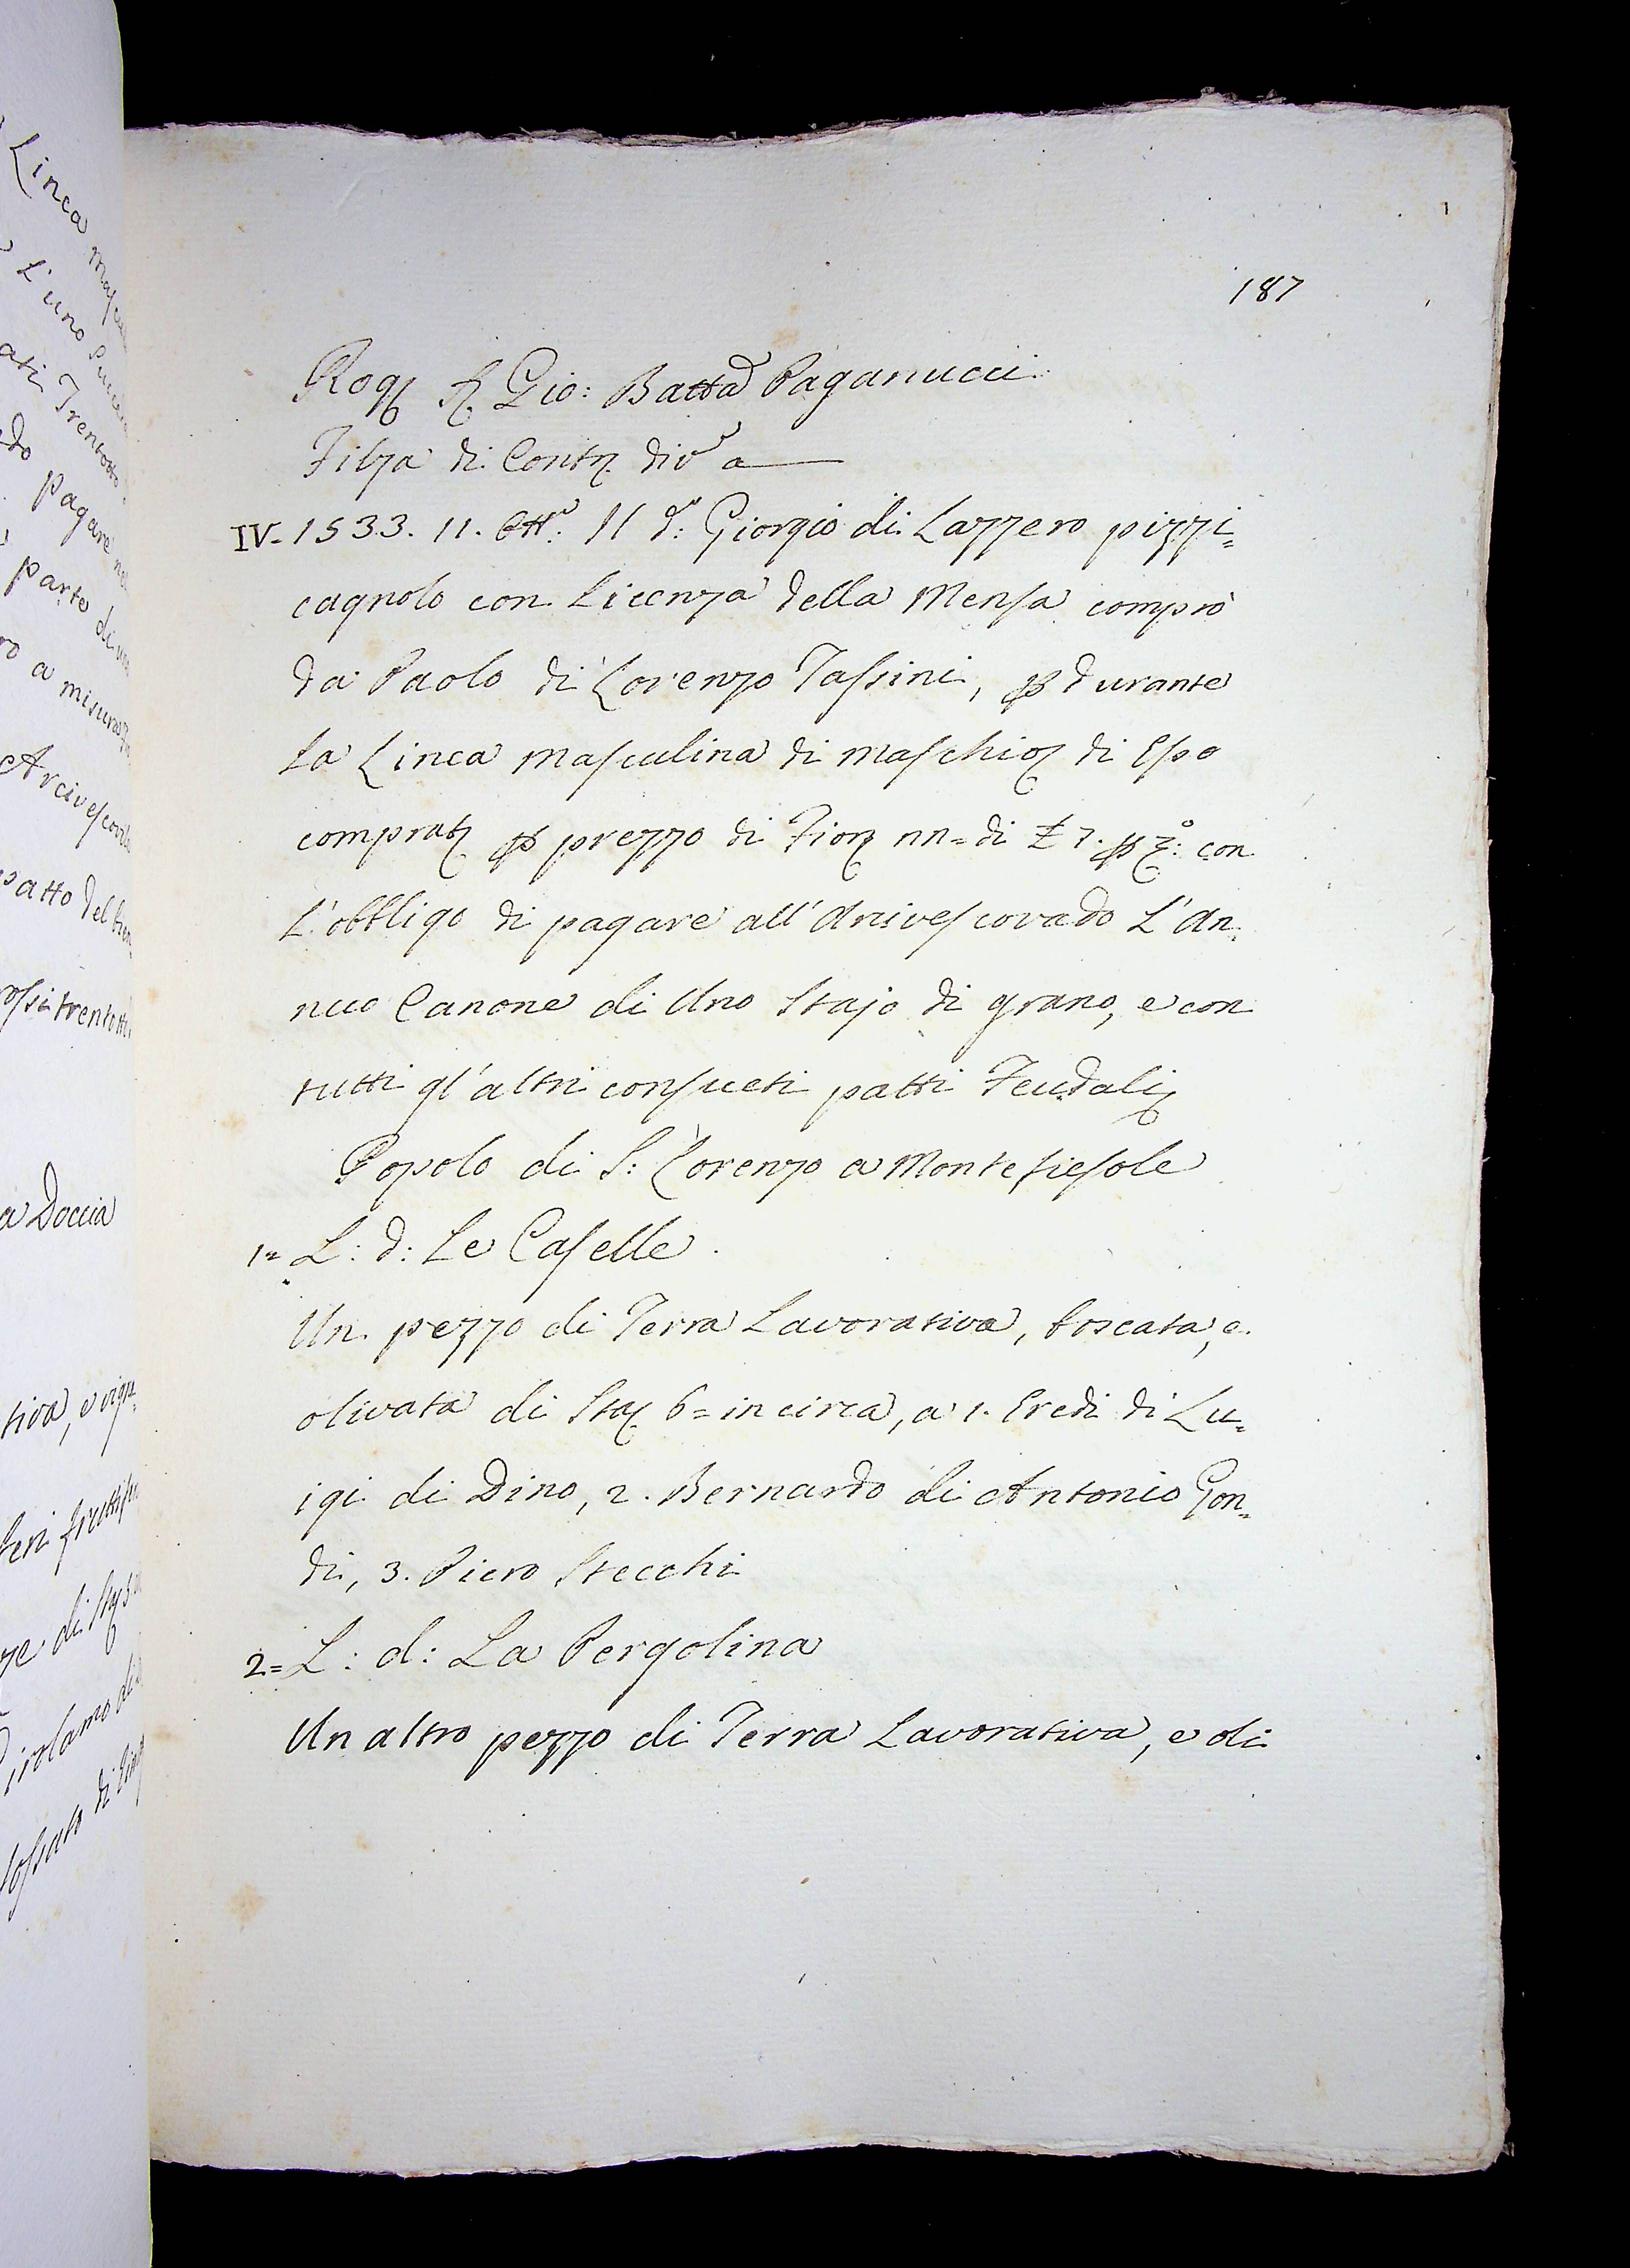 Linea mascu
L'uno
ati Trentotto
do pagare ne
parte di
ro a misura
Arcivescovile
satto del
ossi trentotto
a Doccia
tiva, e vign
irolamo di
187
Rog. S. Gio: Batta Paganucci
Filza di Contr. div. a
IV. 1533. 11. Ott.e: Il d.o: Giorgio di Lazzero pizzi=
cagnolo con Licenza della Mensa comprò
da Paolo di Lorenzo Tassini, p durante
la Linea masculina di maschio, di Esso
comprat. p prezzo di Fior. nn= di £ 7. p con
L'obbligo di pagare all'Arcivescovado L'An=
nuo Canone di Uno Stajo di grano, e con
tutti gl'altri consueti patti Feudali
Popolo di S: Lorenzo a Montefiesole
1= L: d: Le Caselle.
Un pezzo di Terra Lavorativa, boscata, e
olivata di Sta. 6= in circa, a 1. Eredi di Lu=
igi di Dino, 2. Bernardo di Antonio Gon=
di, 3. Piero Stecchi
2= L: d: La Pergolina
Un altro pezzo di Terra Lavorativa, e oli